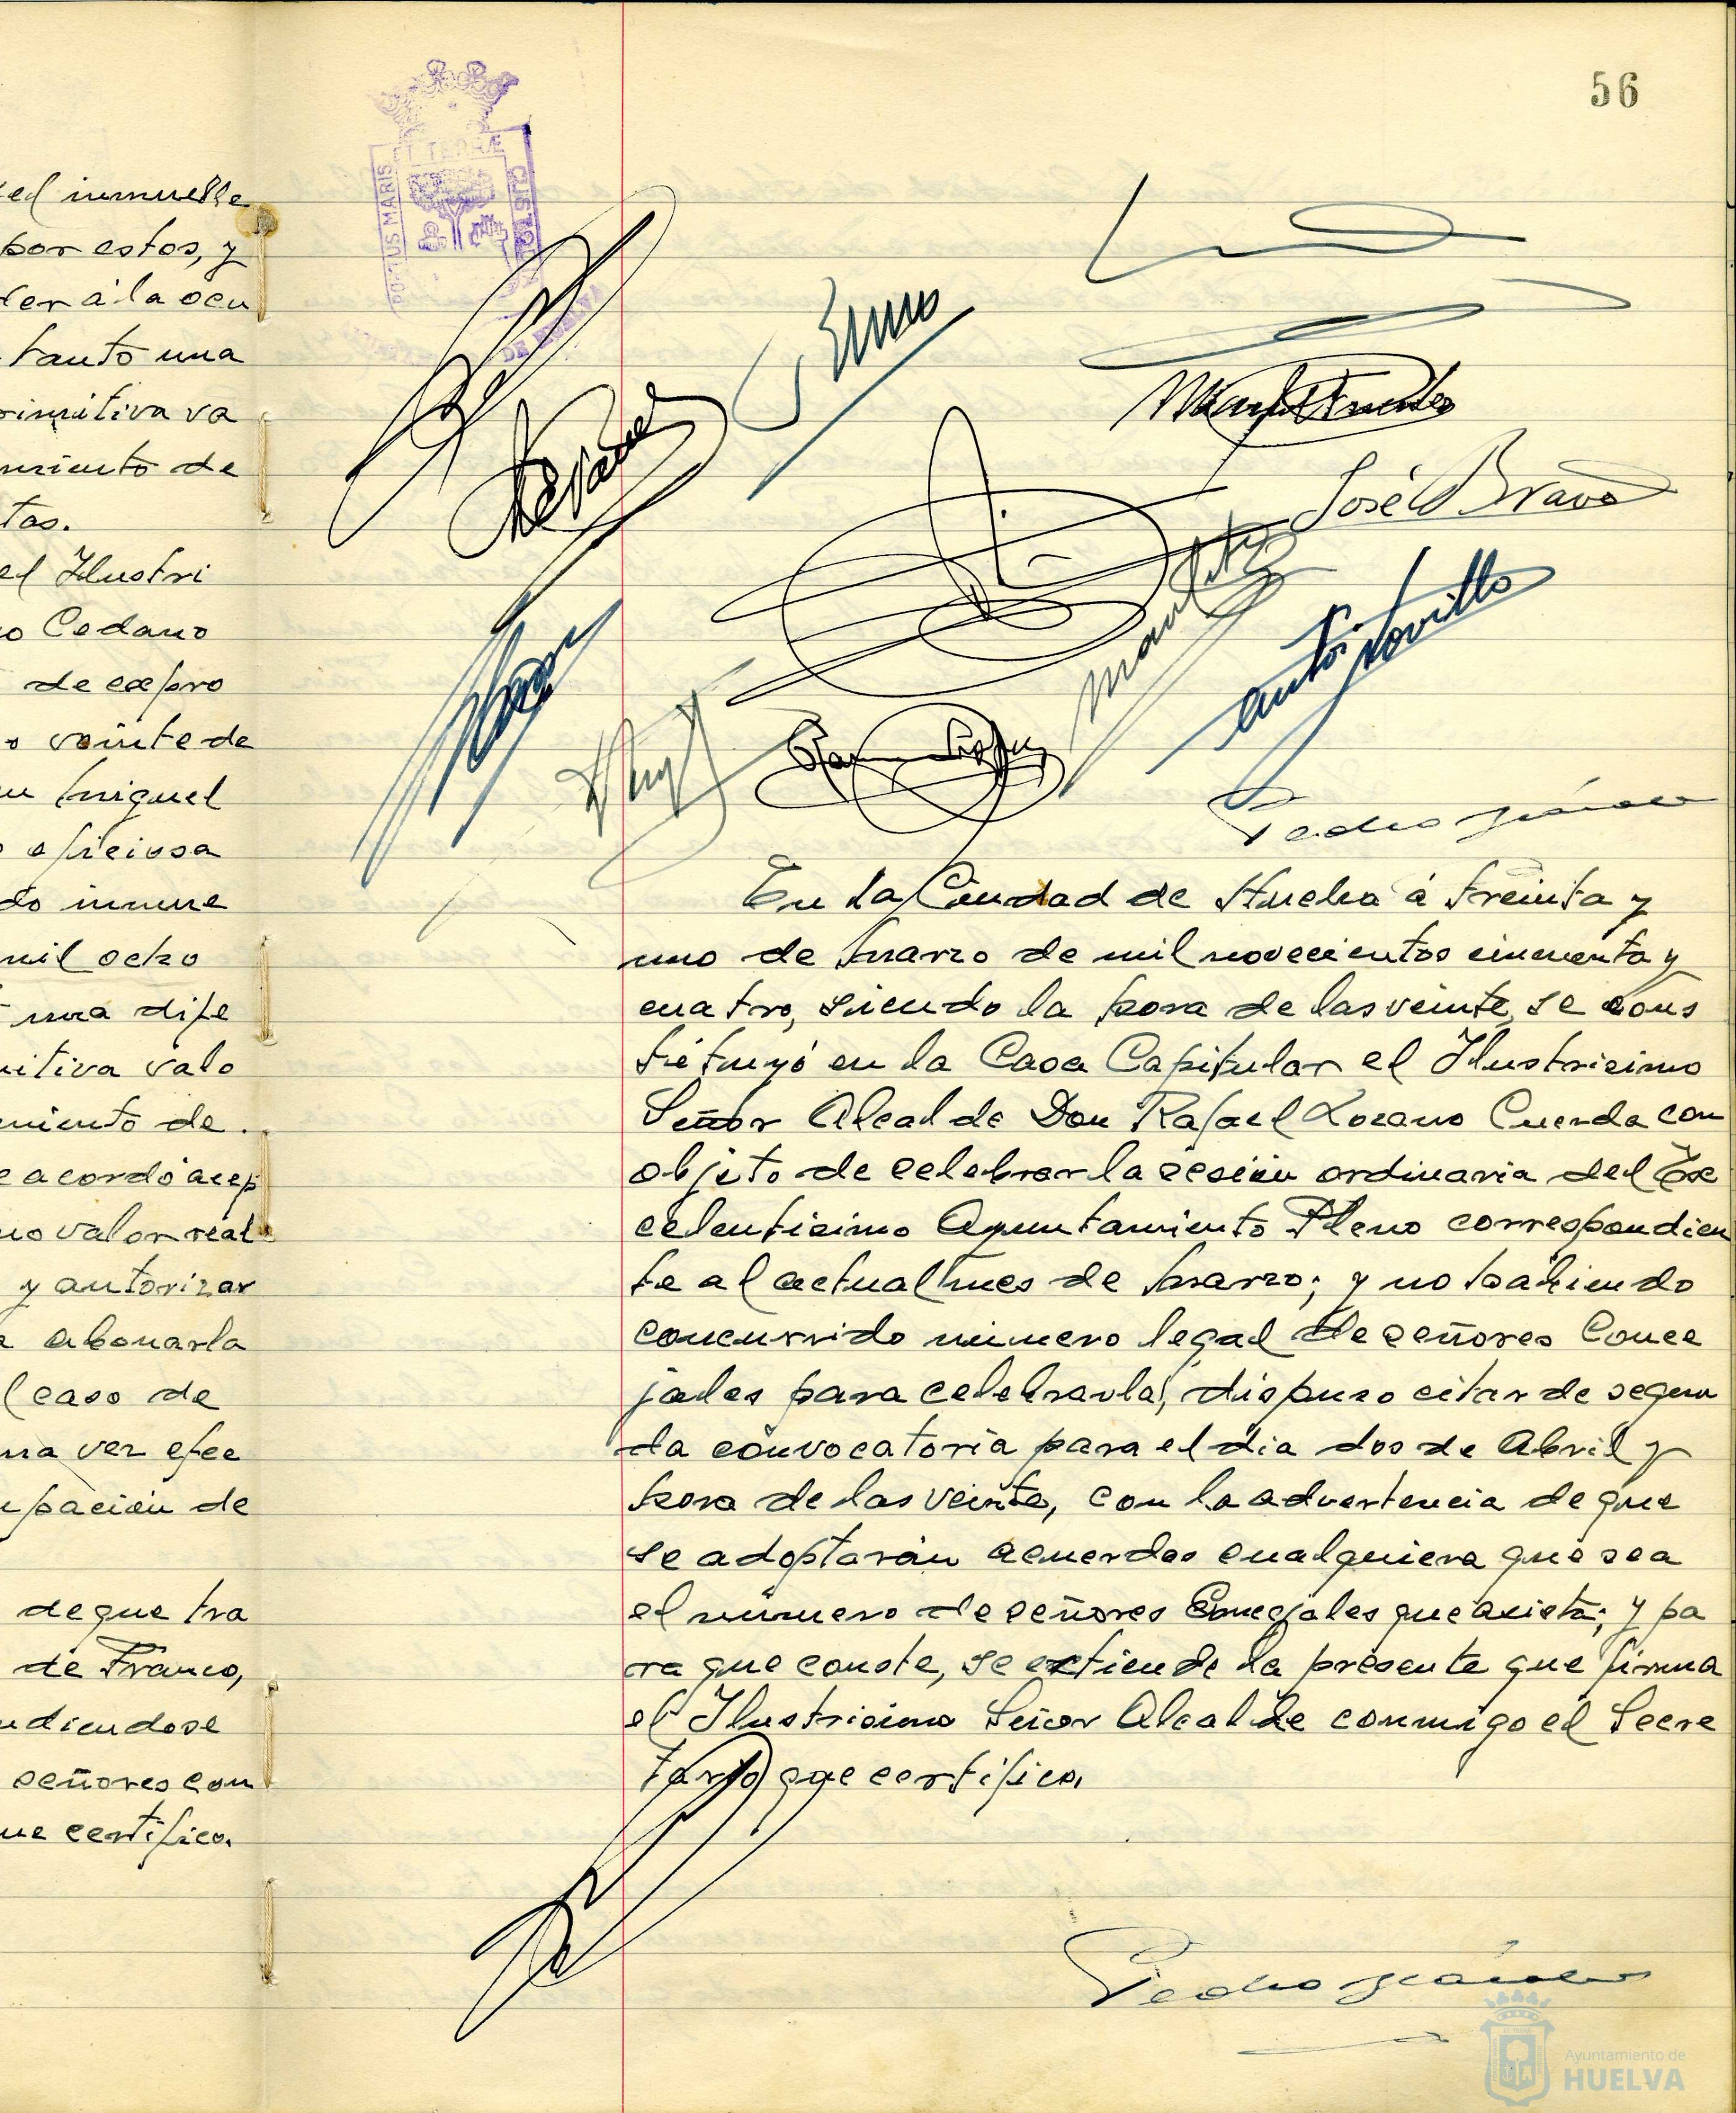 56
el inmueble
por estos, y
der á la ocu
tanto una
rimitiva va
miento de
tas.
el Ilustri
o Cedano
de expro
o veinte de
n Miguel
oficiosa
do inmue
mil ocho
una dife
mitiva valo
miento de
e acordó acep
mo valor real
y autorizar
a abonarla
l caso de
na vez efec
upación de
de que tra
de Franco,
ndiendose
señores con
ue certifico.
PORTUS MARIS
ET TERRÆ
CUSTODIA
DE HUELVA
José Bravo
Antº. Novillo
Pedro
En la Ciudad de Huelva á treinta y
uno de Marzo de mil novecientos cincuenta y
cuatro, siendo la hora de las veinte, se cons
tituyó en la Casa Capitular el Ilustrisimo
Señor Alcalde Don Rafael Lozano Cuerda con
objeto de celebrar la sesión ordinaria del Ex
celentisimo Ayuntamiento Pleno correspondien
te al actual mes de Marzo; y no habiendo
concurrido número legal de señores Conce
jales para celebrarla, dispuso citar de segun
da convocatoria para el dia dos de Abril y
hora de las veinte, con la advertencia de que
se adoptarán acuerdos cualquiera que sea
el número de señores Concejales que asista; y pa
ra que conste, se extiende la presente que firma
el Ilustrisimo Señor Alcalde conmigo el Secre
tario que certifico.
Pedro
Ayuntamiento de
HUELVA